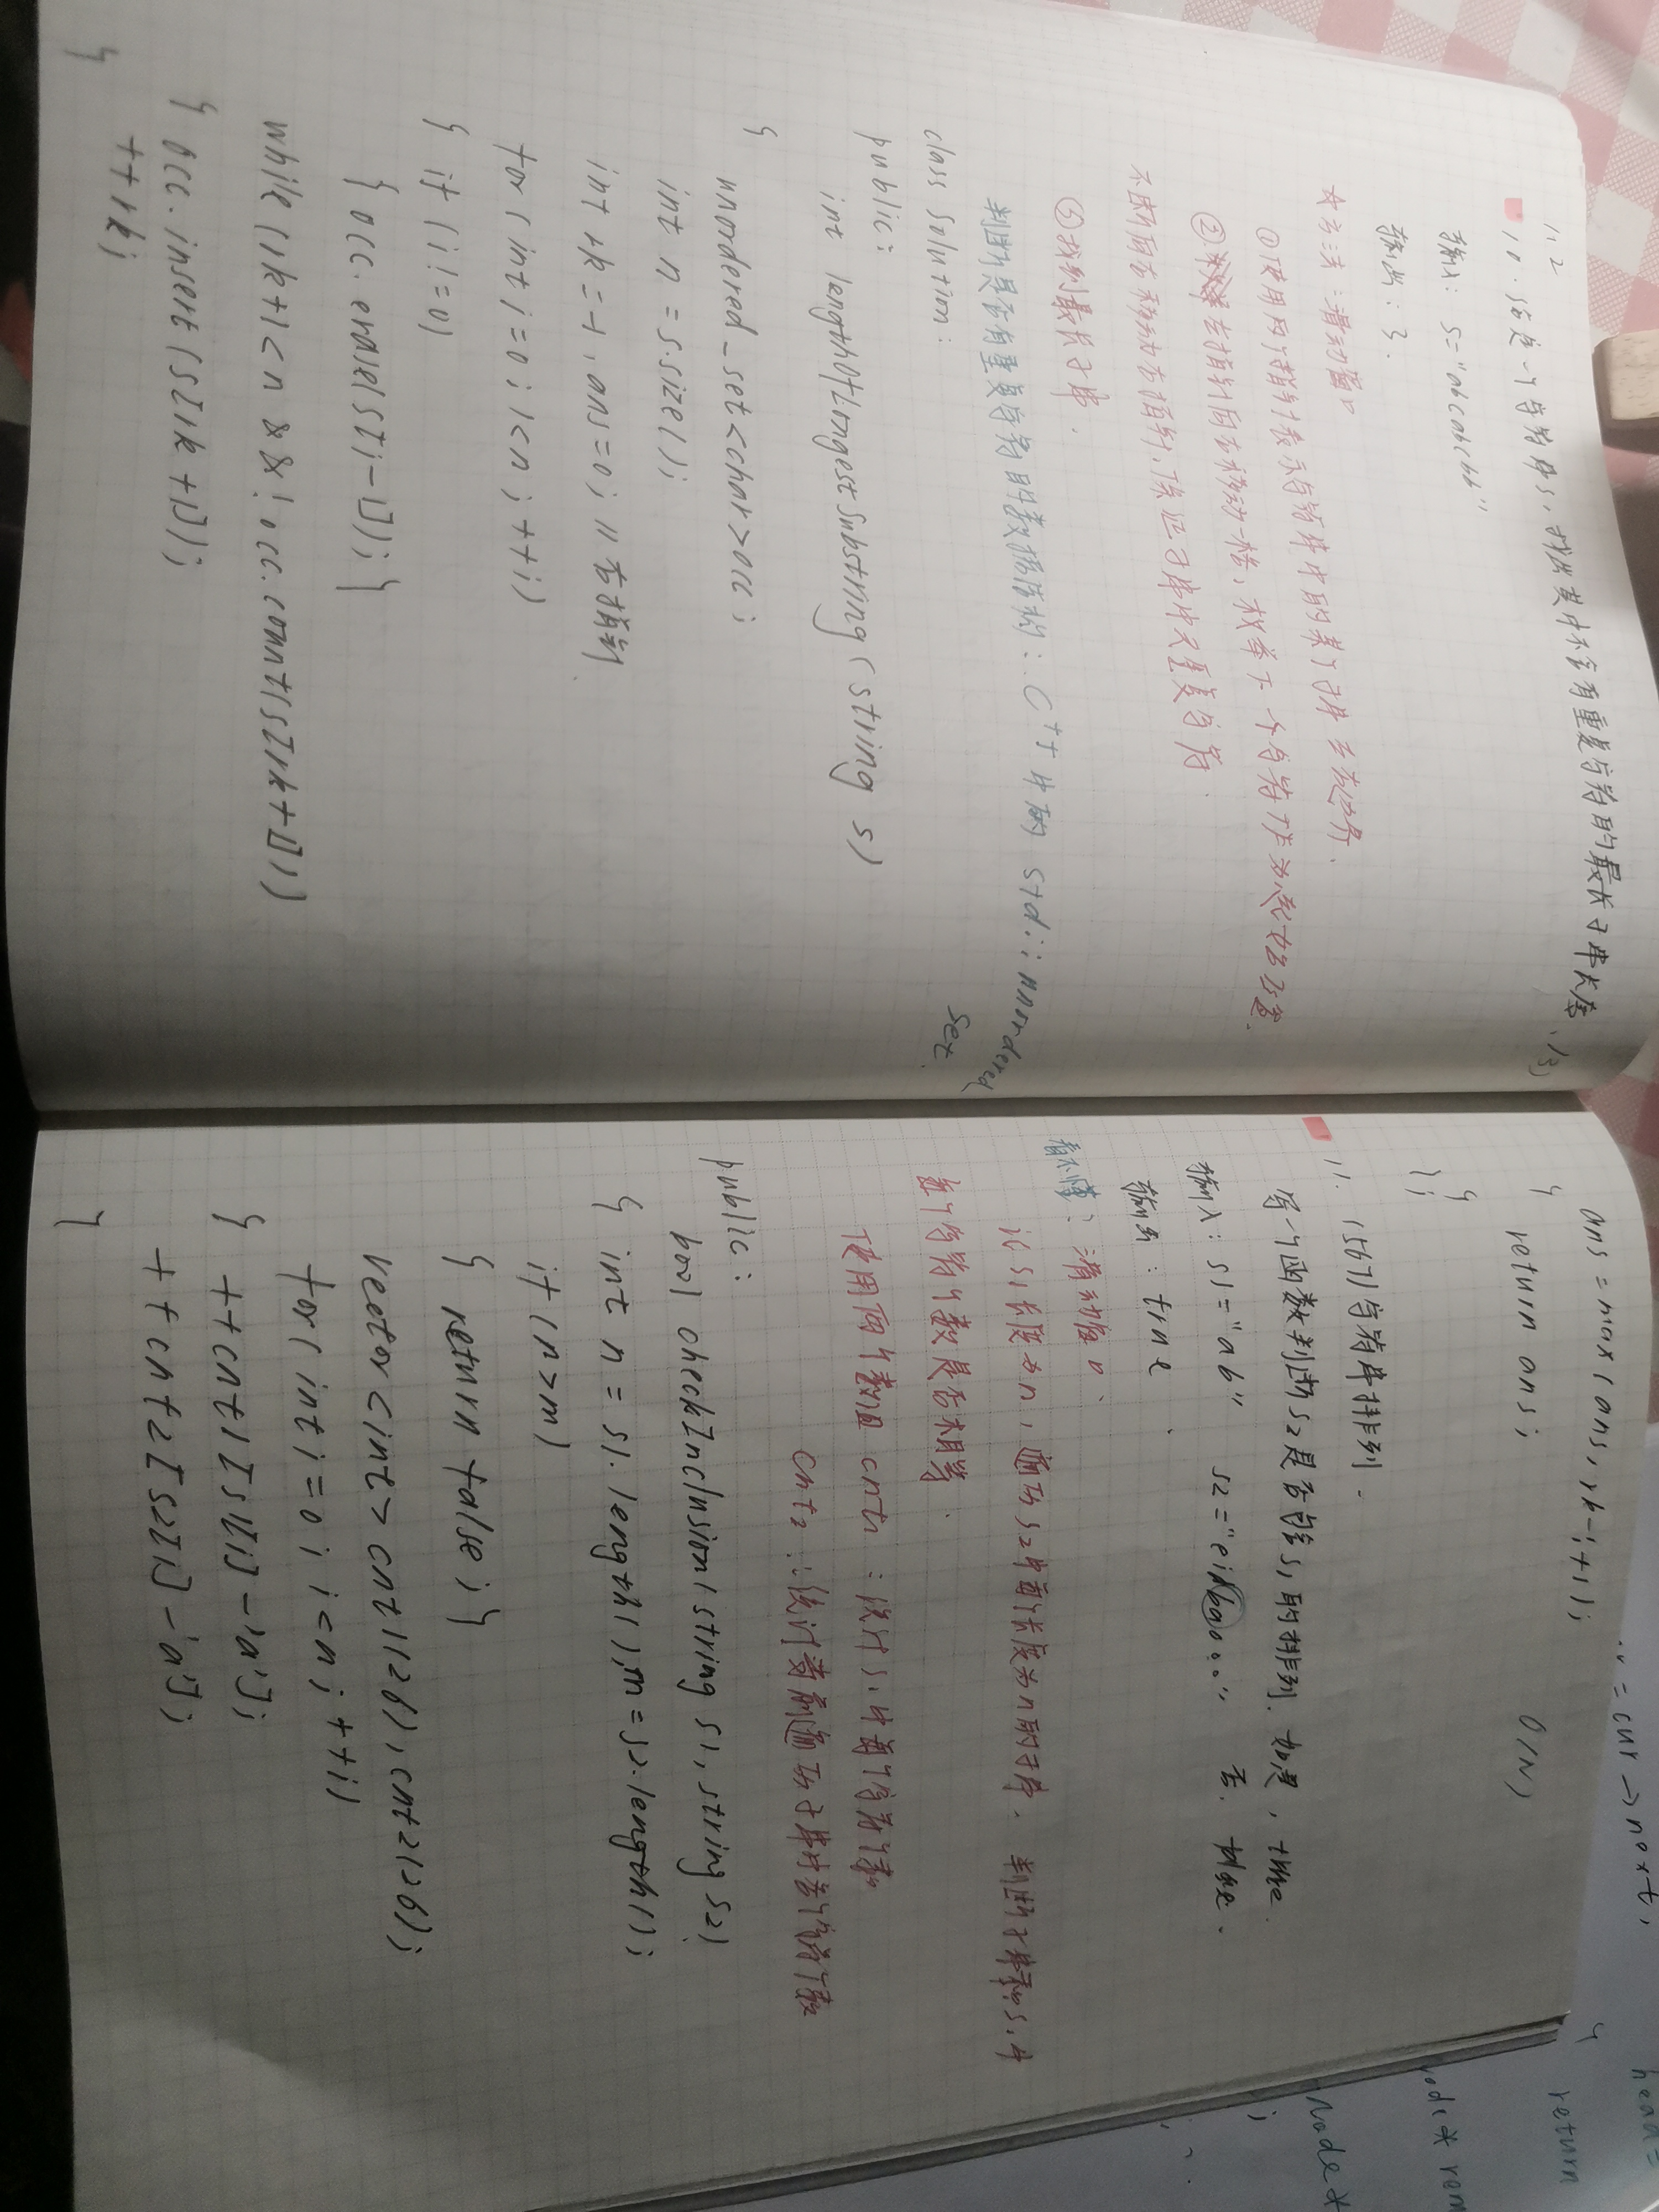 11.2
10. 给定一个字符串s,找出其中不含有重复字符的最长子串长度.(3)
输入: s="abcabcbb"
输出: 3.
方法:滑动窗口
①使用两个指针表示字符串中的某个子串 左右边界.
②左指针向右移动一格,枚举下一个字符作为起始位置.
不断向右移动右指针,保证子串中无重复字符
③找到最长子串.
判断是否有重复字符的数据结构: C++中的 std::unordered
set.
class Solution:
public:
int lengthOfLongestSubstring(string s)
{
unordered_set<char>occ;
int n = s.size();
int rk=-1,ans=0; //右指针.
for(int i=0;i<n;++i)
{ if(i!=0)
{ occ.erase(s[i-1]);}
while(rk+1<n && !occ.count(s[rk+1]))
{ occ.insert(s[rk+1]);
++rk;
}
ans=max(ans,rk-i+1);
} return ans; O(N)
}
};
11. (567)字符串排列.
写一个函数判断s2是否包含s1的排列. 如果是,true.
输入: s1="ab" s2="eidbaooo" 否. false.
输出: true.
看不懂: 滑动窗口、
记s1长度为n,遍历s2中每个长度为n的子串. 判断子串和s1中
每个字符个数是否相等.
使用两个数组 cnt1: 统计s1中每个字符个数
cnt2: 统计当前遍历子串中各个字符个数
public:
bool checkInclusion(string s1, string s2)
{ int n = s1.length(),m=s2.length();
if(n>m)
{ return false;}
vector<int> cnt1(26),cnt2(26);
for(int i=0;i<n;++i)
{ ++cnt1[s1[i]-'a'];
++cnt2[s2[i]-'a'];
}
=cur->next;
return